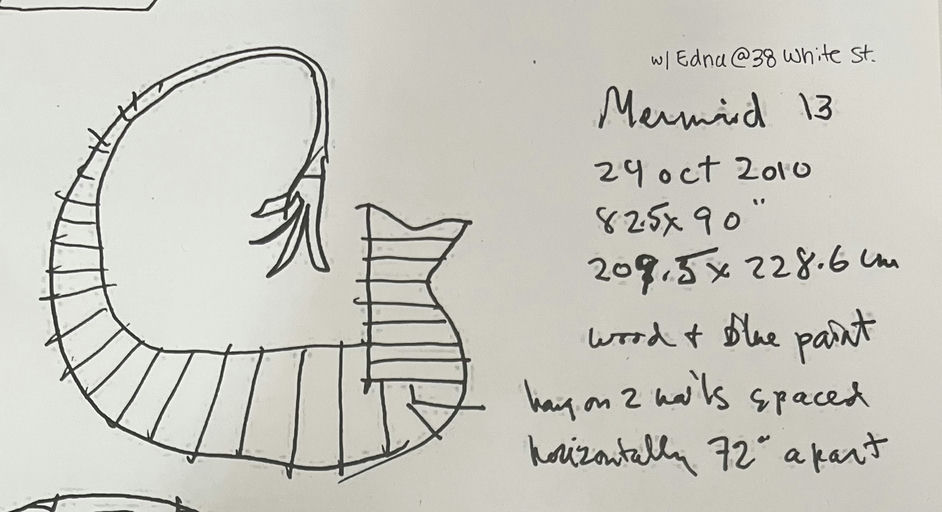 w/ Edna @ 38 White St.
Mermaid 13
29 oct 2010
82.5 x 90"
209.5 x 228.6 cm
wood + blue paint
hang on 2 nails spaced
horizontally 72" apart